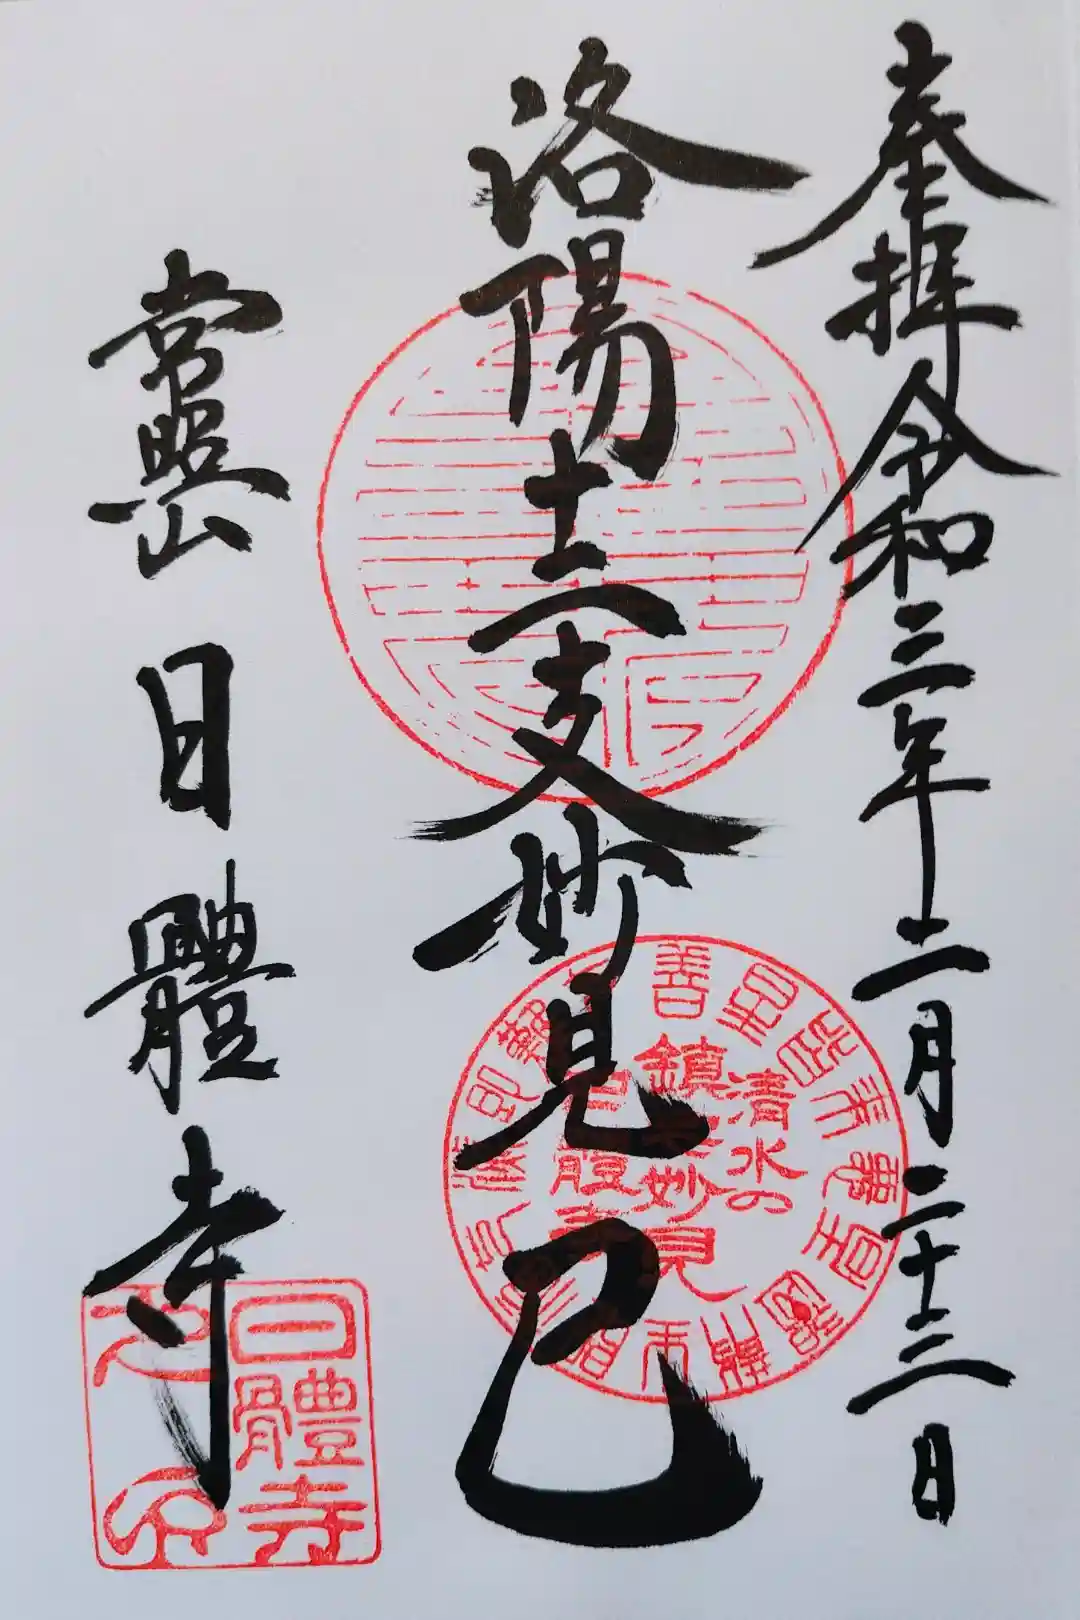 奉拝 令和三年十二月二十三日
洛陽十二支妙見 巳
常照山 日體寺
清水の
鎮宅妙見
日體寺
日體寺
之印